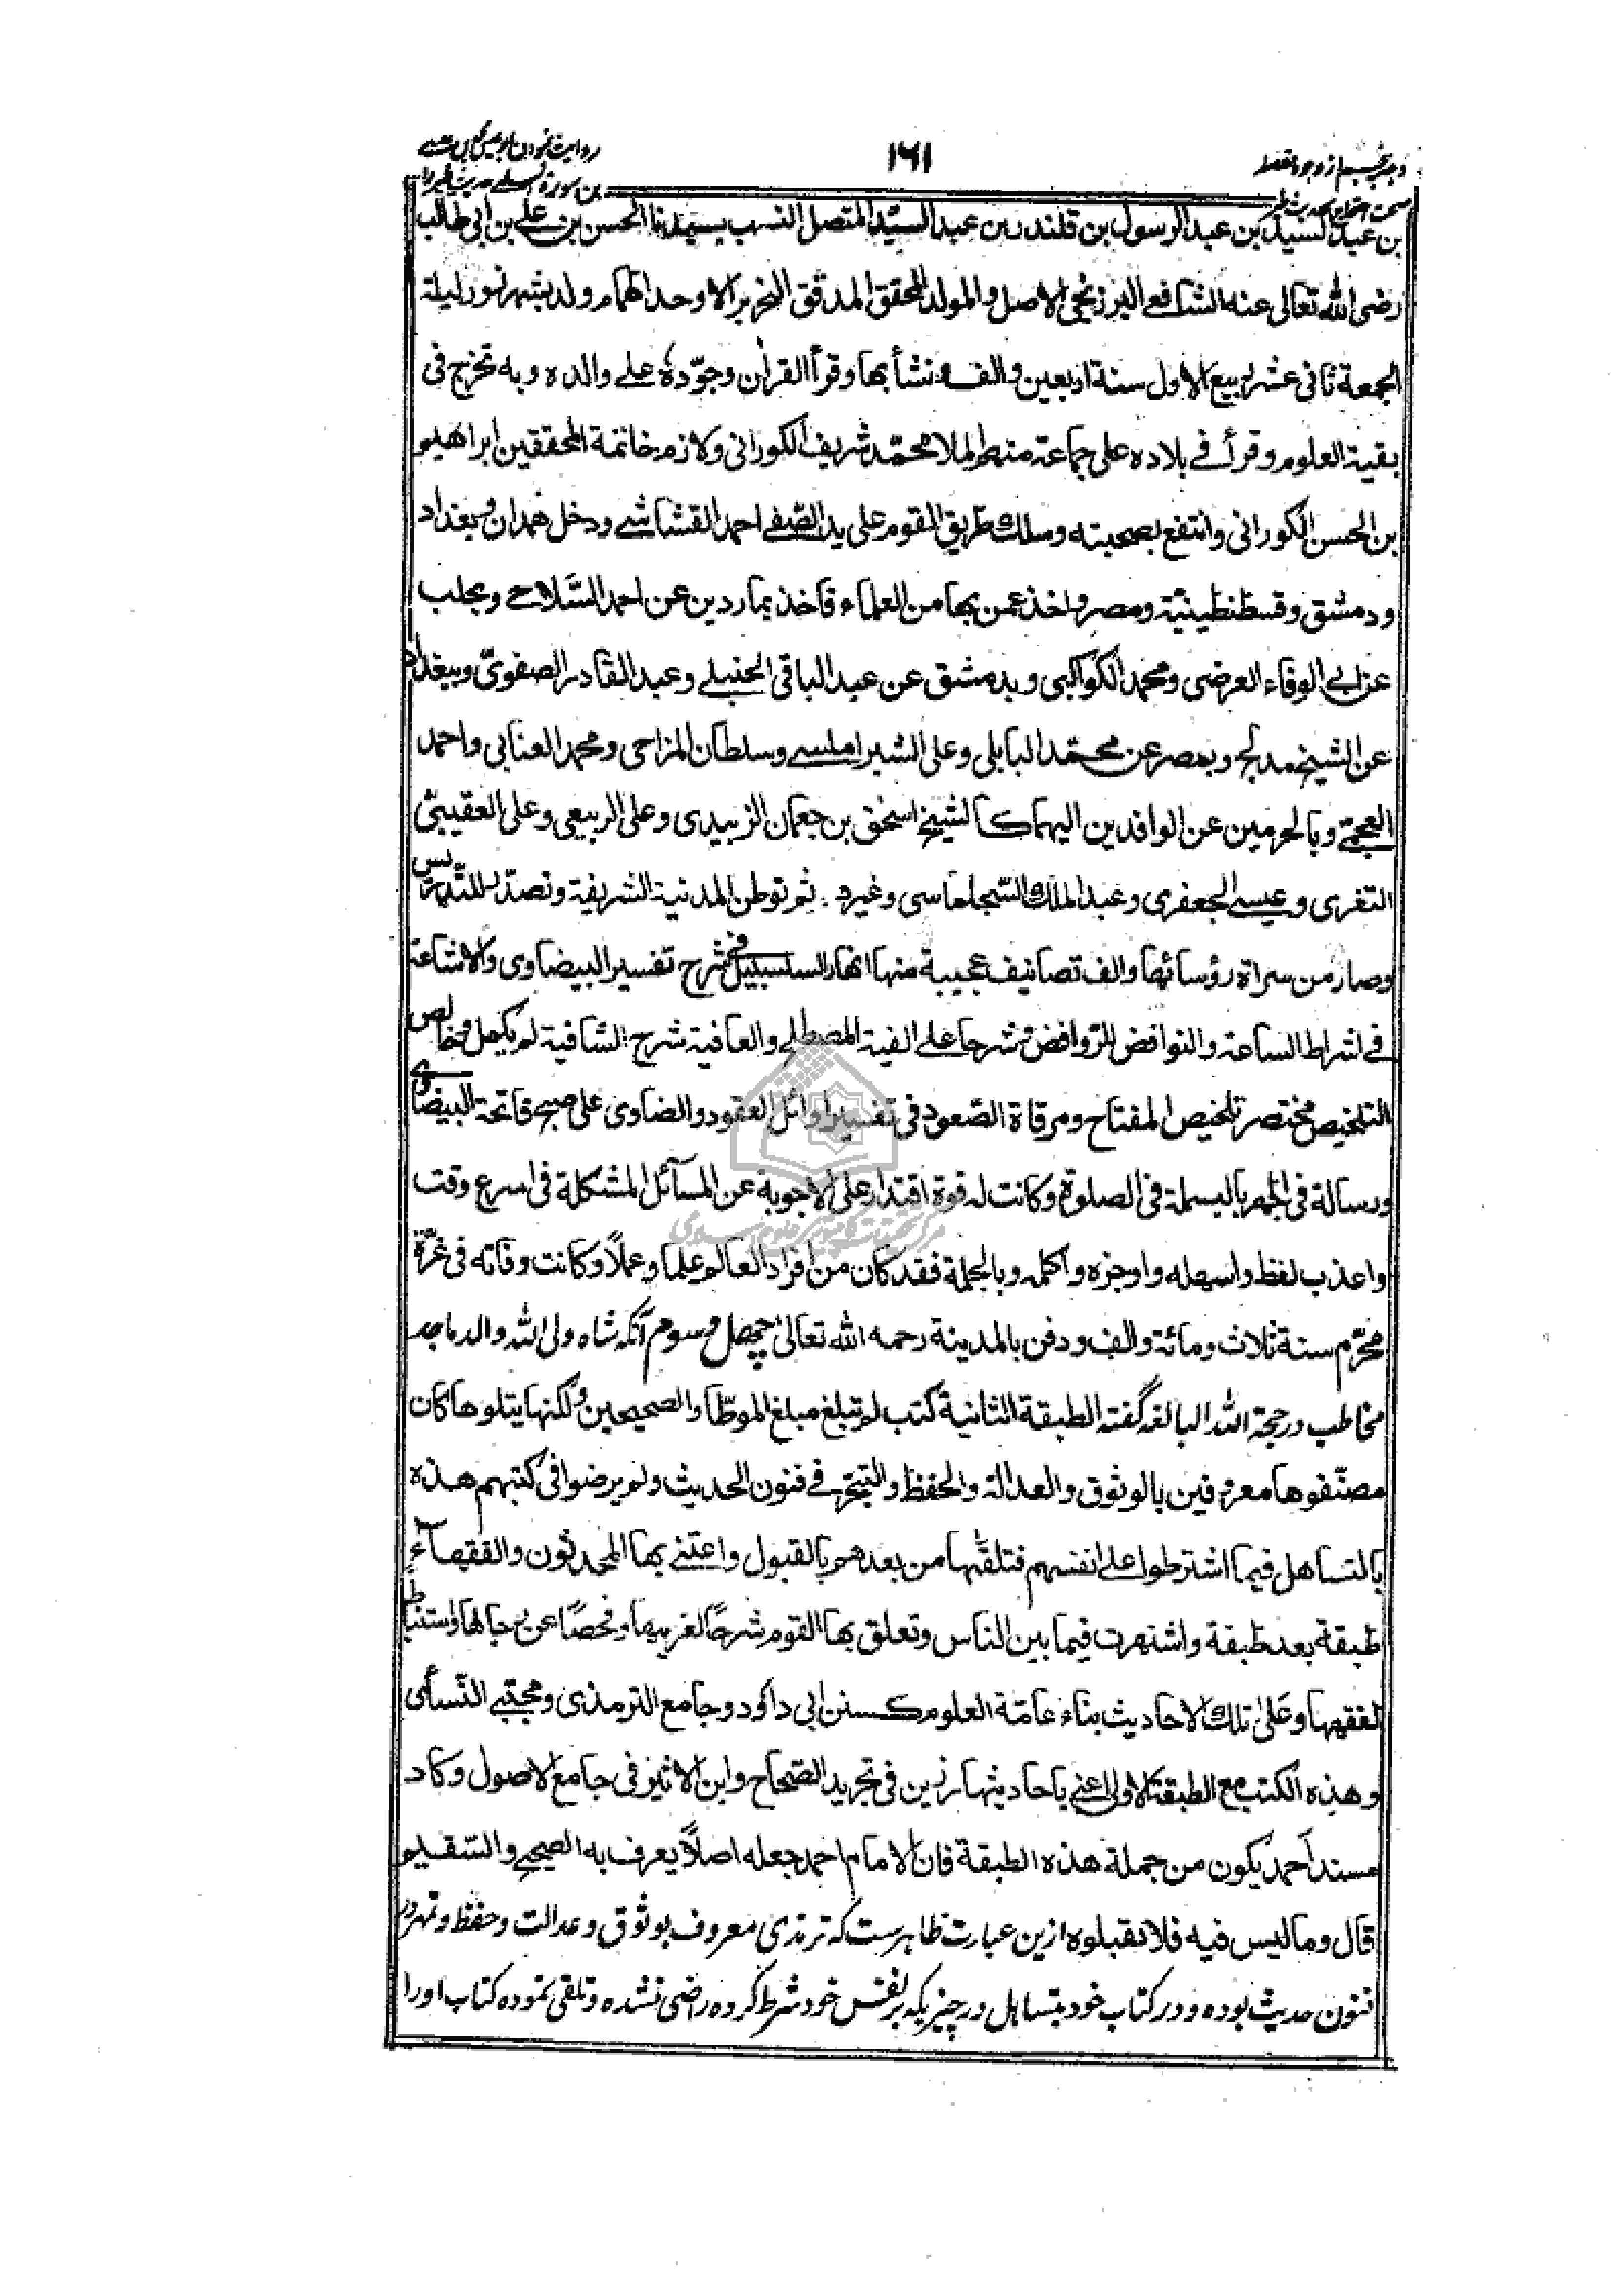 ۱۶۱
روایت نمودن ابو عیسی محمد بن عیسی
بن سورة السلمی حدیث طیر را
بن عبد السيد بن عبد الرسول بن قلندر بن عبد السيّد المتصل النسب بسيدنا الحسن بن علي بن ابي طالب
رضى الله تعالى عنه الشافعي البرزنجي الاصل والمولد المحقق المدقق النحرير الاوحد الهمام ولد بشهرزور ليلة
الجمعة ثانى عشر ربيع الاول سنة اربعين والف ونشأ بها وقرأ القرآن وجوّده على والده وبه تخرج في
بقية العلوم وقرأ في بلاده على جماعة منهم الملا محمّد شريف الكوراني ولازم خاتمة المحققين ابراهيم
بن الحسن الكوراني وانتفع بصحبته وسلك طريق القوم على يد الصّفى احمد القشاشى ودخل همدان وبغداد
ودمشق وقسطنطينيّة ومصر واخذ عمن بها من العلماء فاخذ بماردين عن احمد السّلاحى وبحلب
عن ابي الوفاء العرضى ومحمد الكواكبي وبدمشق عن عبد الباقي الحنبلى وعبد القادر الصفوىّ وببغداد
عن الشيخ مدلج وبمصر عن محمّد البابلى وعلى الشبراملسى وسلطان المزاحى ومحمد العنابى واحمد
العجمى وبالحرمين عن الوافدين اليهما كالشيخ اسحق بن جعمان الزبيدى وعلى الربيعى وعلى العقيبىّ
التغرى وعيسى الجعفرى وعبد الملك السّجلماسى وغيره ثم توطن المدينة الشريفة وتصدّر للتّدريس
وصار من سراة رؤسائها والف تصانيف عجيبة منها انهار السلسبيل في شرح تفسير البيضاوى والاشاعة
في اشراط الساعة والنوافض للرّوافض وشرحا على الفية المصطلح والعافية شرح الشافية لم يكمل وخالص
التلخيص مختصر تلخيص المفتاح ومرقاة الصّعود في تفسير اوائل العقود والضاوى على صبح فاتحة البيضاوى
ورسالة في الجهر بالبسملة في الصلوة وكانت له قوة اقتدار على الاجوبة عن المسآئل المشكلة في اسرع وقت
واعذب لفظ واسهله واوجزه واكمله وبالجملة فقد كان من افراد العالم علما وعملاً وكانت وفاته في غرّة
محرّم سنة ثلاث ومائة والف ودفن بالمدينة رحمه الله تعالى چهل وسوم آنكه شاه ولى الله والد ماجد
مخاطب در حجة الله البالغه گفته الطبقة الثانية كتب لم تبلغ مبلغ الموطّا والصحيحين ولكنها يتلوها كان
مصنّفوها معروفين بالوثوق والعدالة والحفظ والتبحّر في فنون الحديث ولم يرضوا في كتبهم هذه
بالتساهل فيما اشترطوا على انفسهم فتلقّاها من بعدهم بالقبول واعتنى بها المحدثون والفقهآء
طبقة بعد طبقة واشتهرت فيما بين الناس وتعلق بها القوم شرحًا لغريبها وفحصًا عن رجالها واستنباطًا
لفقهها وعلى تلك الاحاديث بناء عامّة العلوم كسنن ابي داؤد وجامع الترمذى ومجتبى النّسائى
وهذه الكتب مع الطبقة الاولى اعتنى باحاديثها رزين في تجريد الصّحاح وابن الاثير في جامع الاصول وكاد
مسند احمد يكون من جملة هذه الطبقة فان الامام احمد جعله اصلاً يعرف به الصحيح والسّقيم
قال وما ليس فيه فلا تقبلوه ازين عبارت ظاهرست كه ترمذى معروف بوثوق وعدالت وحفظ وتبحر در
فنون حديث بوده ودر كتاب خود بتساهل در چيزيكه بر نفس خود شرط كرده راضى نشده وتلقى نموده كتاب او را